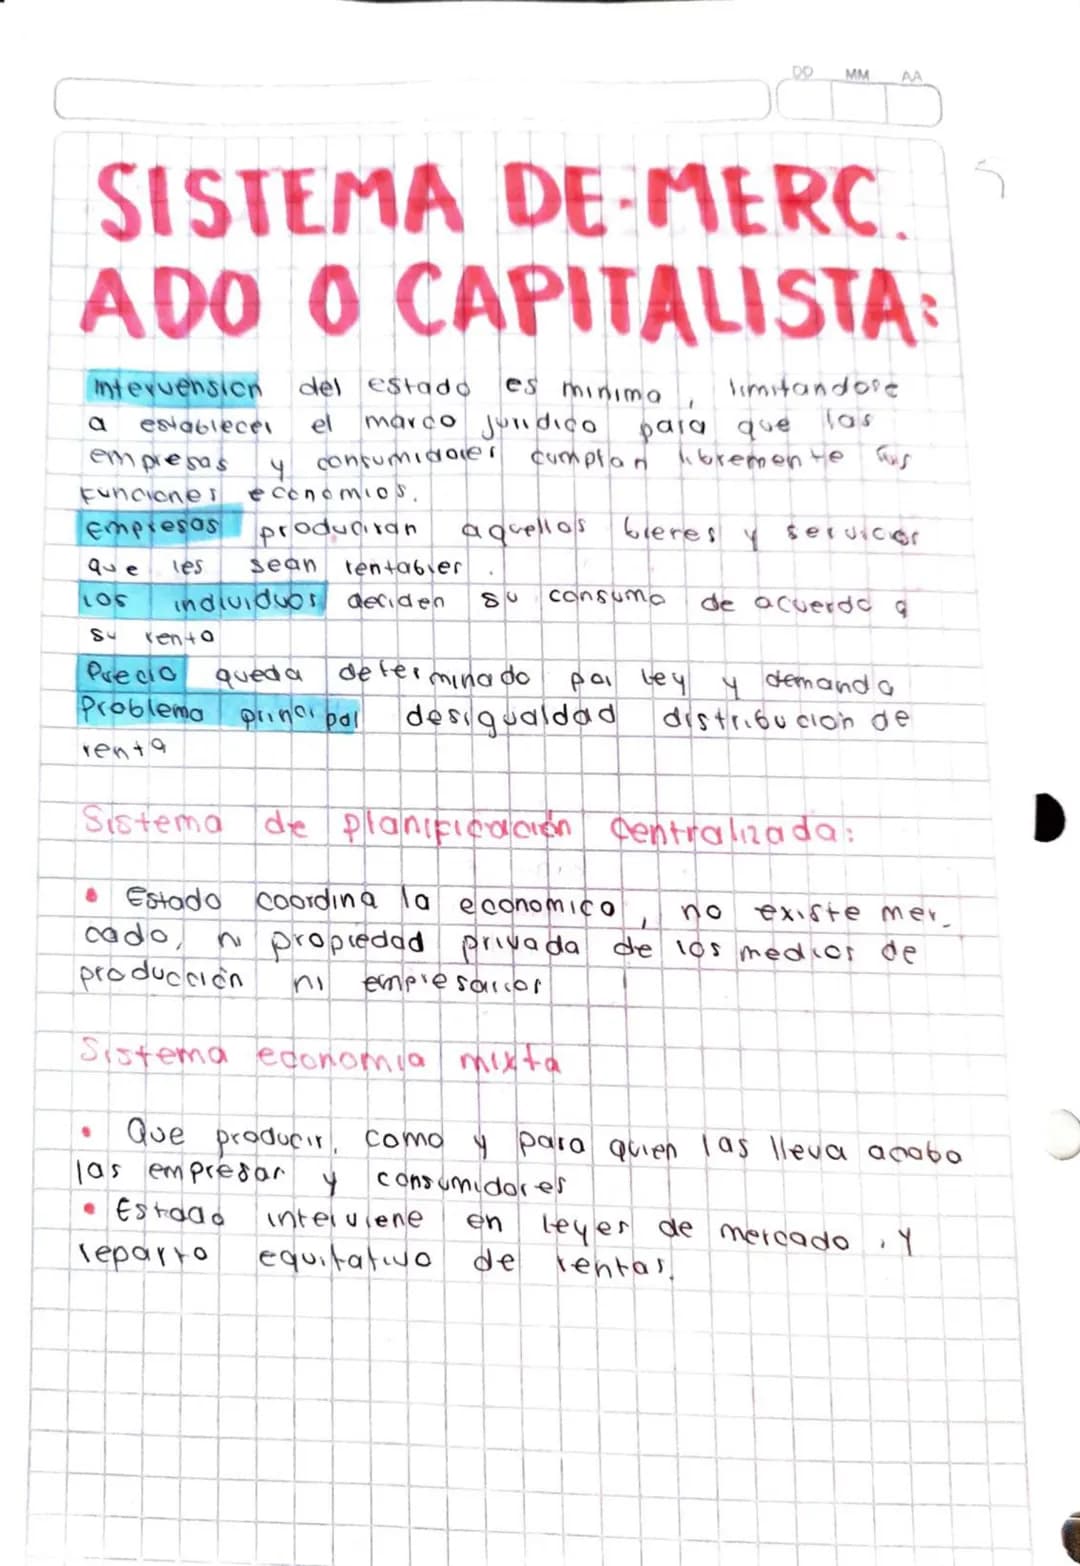 DD MM AA
SISTEMA DE MERC.
ADO O CAPITALISTA:
Intervensión del estado es minima, limitandose
a establecer el marco juridico para que las
empresas y consumidores cumplan libremente sus
funciones economios.
Empresas produciran aquellos bienes y servicios
que les sean rentables.
Los individuos deciden su consumo de acuerdo a
su renta
Precio queda determinado por ley y demanda
Problema principal desigualdad distribución de
renta
Sistema de planificación centralizada:
• Estado coordina la economico, no existe mer-
cado, ni propiedad privada de los medios de
producción ni empresarios
Sistema economia mixta
• Que producir, como y para quien las lleva acabo
las empresas y consumidores
• Estado interviene en leyes de mercado, y
reparto equitativo de rentas.